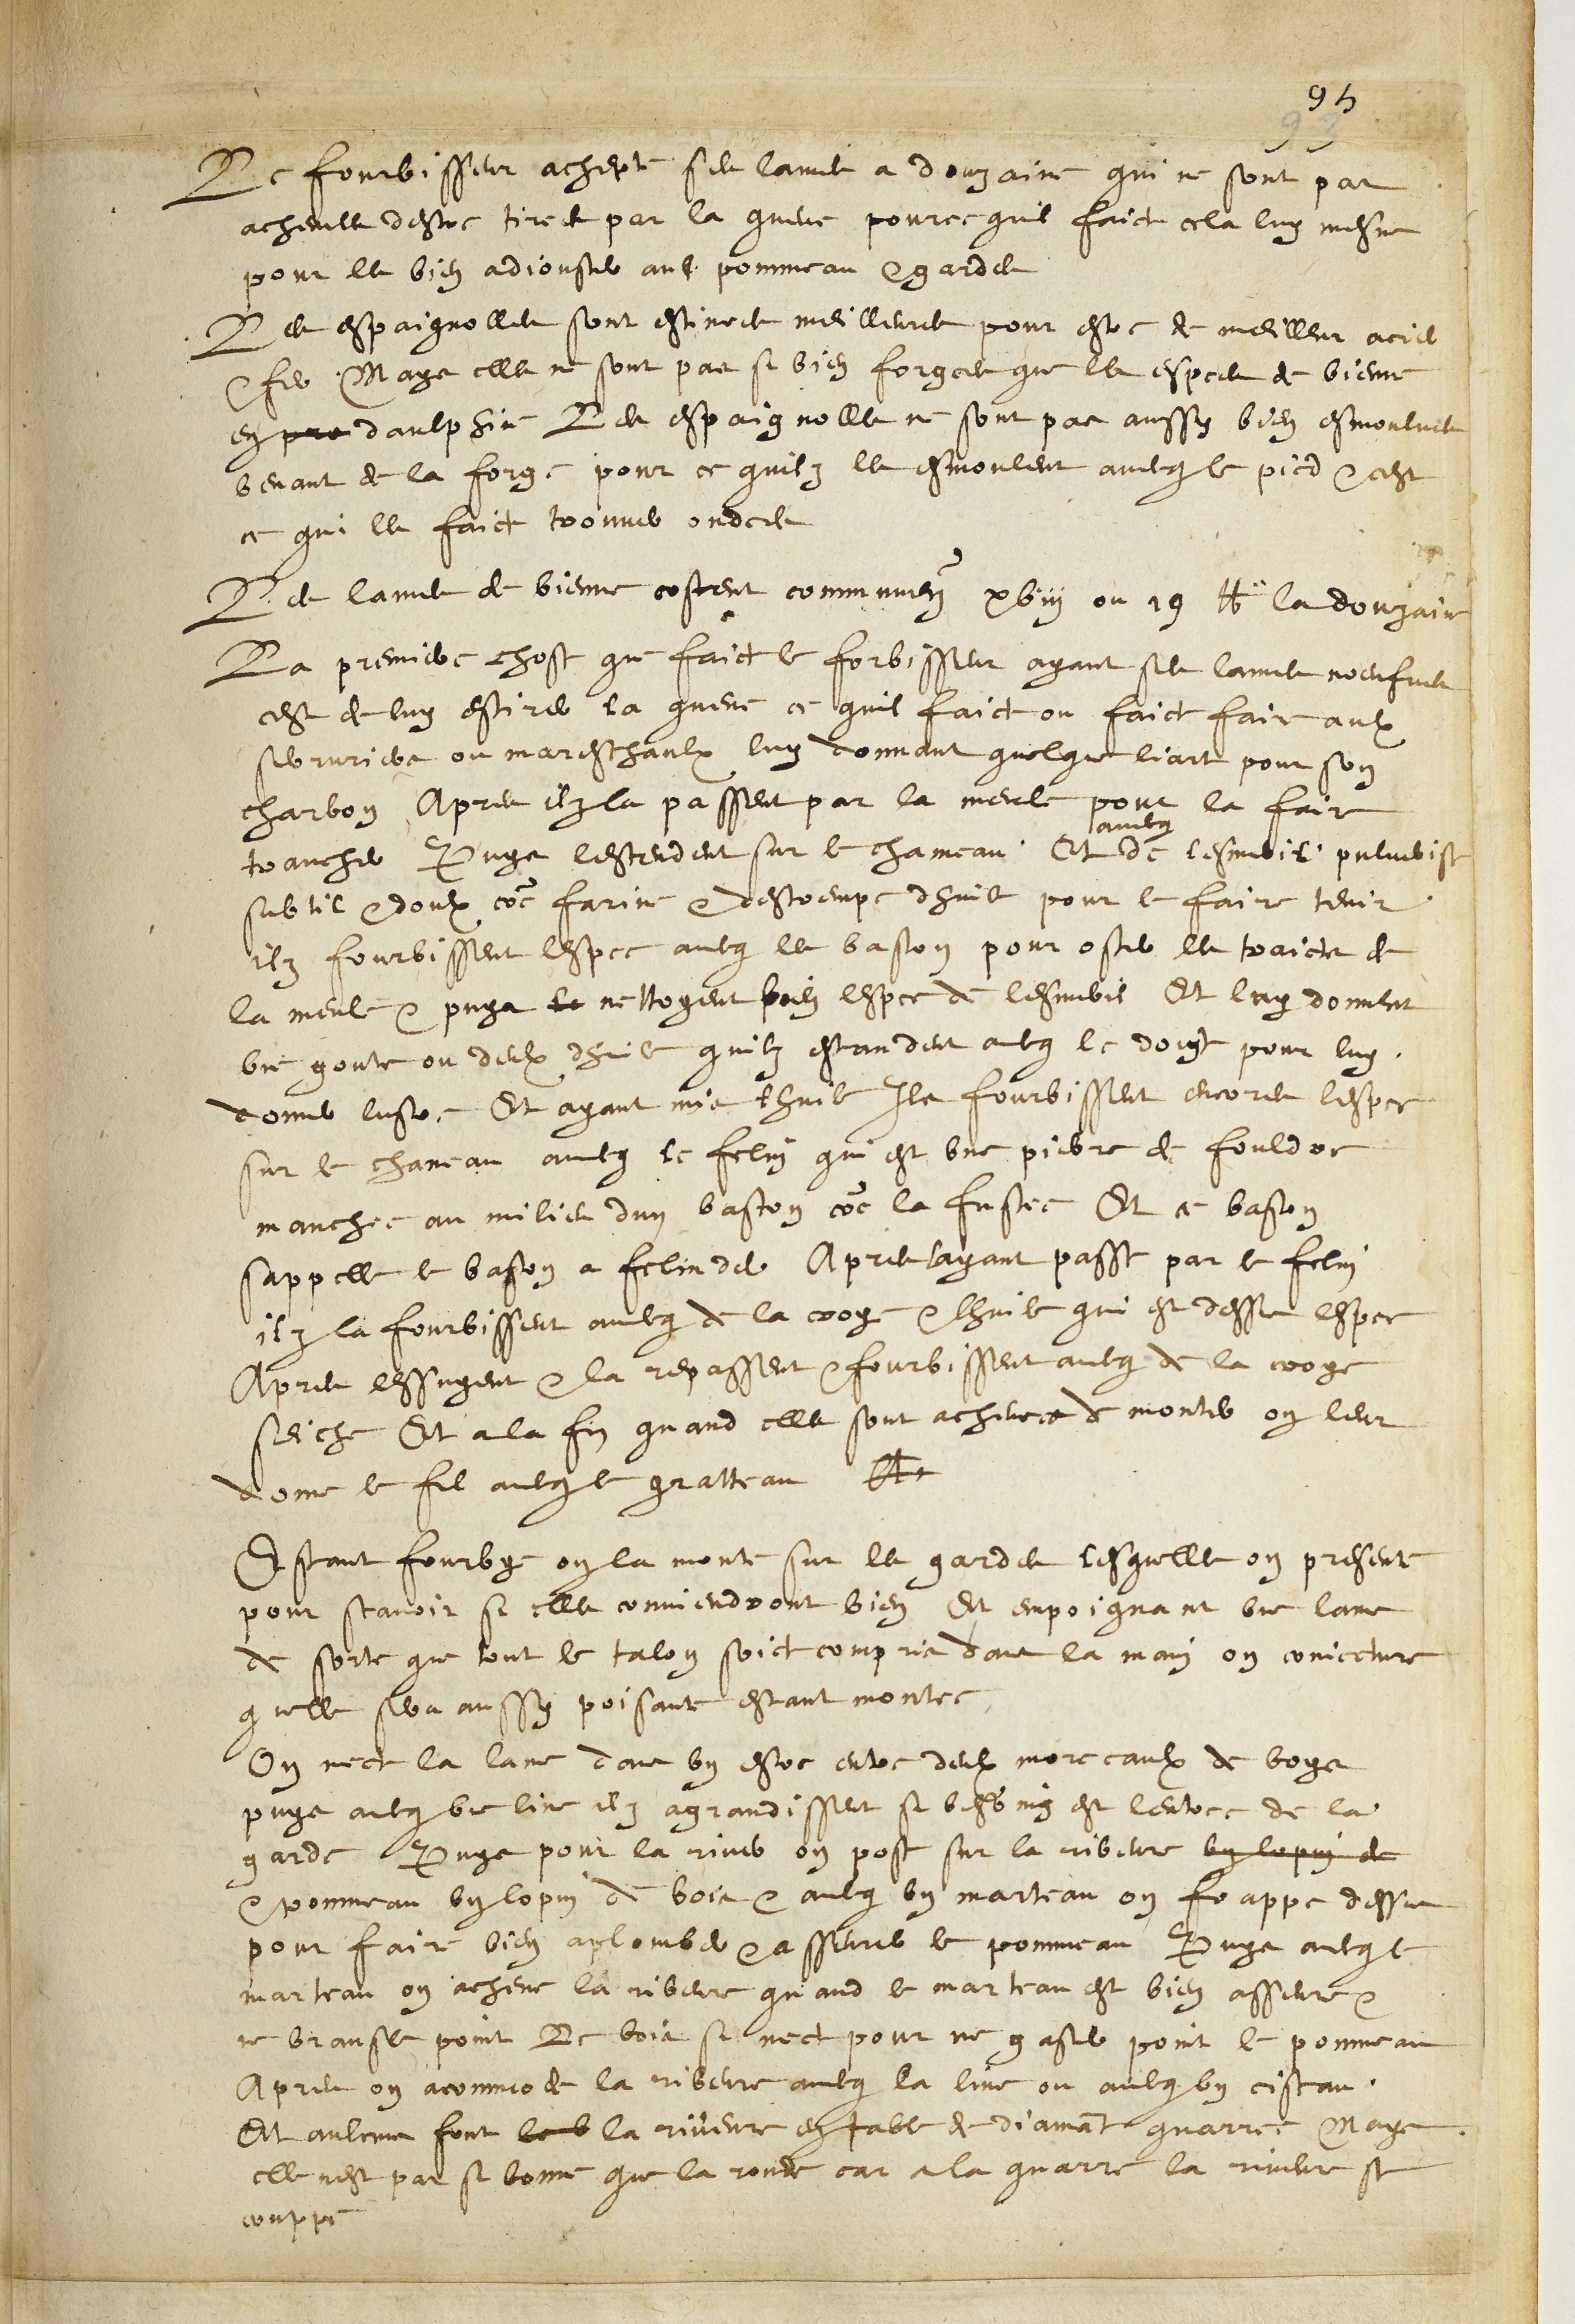 95
93
Le fourbisseur achepte ses lames a douzaine qui ne sont pas
achevees destoc tirees par la queue pource quil faict cela luy mesme
pour les bien adiouster aux pommeau & gardes
Les espaignolles sont estimees meilleures pour estoc de meilleur acier
& fer Mays elles ne sont pas si bien forgees que les espees de vienne
en pro daulphine Les espaignolles ne sont pas aussy bien esmoulues
venant de la forge pour ce quilz les esmoulent aulx avecq le pied & cest
ce qui les faict trouver ondees
Les lames de vienne costent communem xviii ou 19 lb la douzaine
La premiere chose que faict le forbisseur ayant ses lames noeufves
cest de luy estirer la queue ce quil faict ou faict faire aulx
serruriers ou mareschaulx luy donnant quelques liarts pour son
charbon Apres ilz la passent par la meule pour la faire
trancher Puys lestendent sur le chameau Et avecq de lesmeril pulverise
subtil & doulx coe farine & destrempe dhuile pour le faire tenir
ilz fourbissent lespee avecq les baston pour oster les traicts de
la meule & puys le nettoyent bien lespee de lesmeril Et luy donnent
une goute ou deux dhuile quilz estandent avecq le doigt pour luy
donner lustre Et ayant mis lhuile Ils fourbissent encores lespee
sur le chameau avecq le felin qui est une pierre de fouldre
manchee au milieu dun baston coe la fustee Et ce baston
sappelle le baston a felinder Apres layant passe par le felin
ilz la fourbissent avecq de la croye & lhuile qui est dessus lespee
Apres lessuyent & la repassent & fourbissent avecq de la croye
seiche Et a la fin quand elles sont achevees de monter on leur
donne le fil avecq le gratteau Et
Estant fourbye on la monte sur les gardes lesquelles on presente
pour scavoir si elles conviendront bien Et empoignant une lame
de sorte que tout le talon soict compris dans la main on coniecture
quelle sera aussy poisante estant montee
On mect la lame dans un estoc entre deux morceaulx de boys
puys avecq une lime ilz agrandissent si besoing est lentree de la
garde Puys pour la river on pose sur la riveure un lopin de
& pommeau un lopin de bois & avecq un marteau on frappe dessus
pour faire bien aplomber & asseurer le pommeau Puys avecq le
marteau on acheve la riveure quand le marteau est bien asseure &
ne bransle point Le bois se mect pour ne gaster point le pommeau
Apres on acommode la riveure avecq la lime ou avecq un ciseau
Et aulcuns font les la riveure en table de diamant quarree Mays
elle nest pas si bonne que la ronde car a la quarre la riveure se
couppe